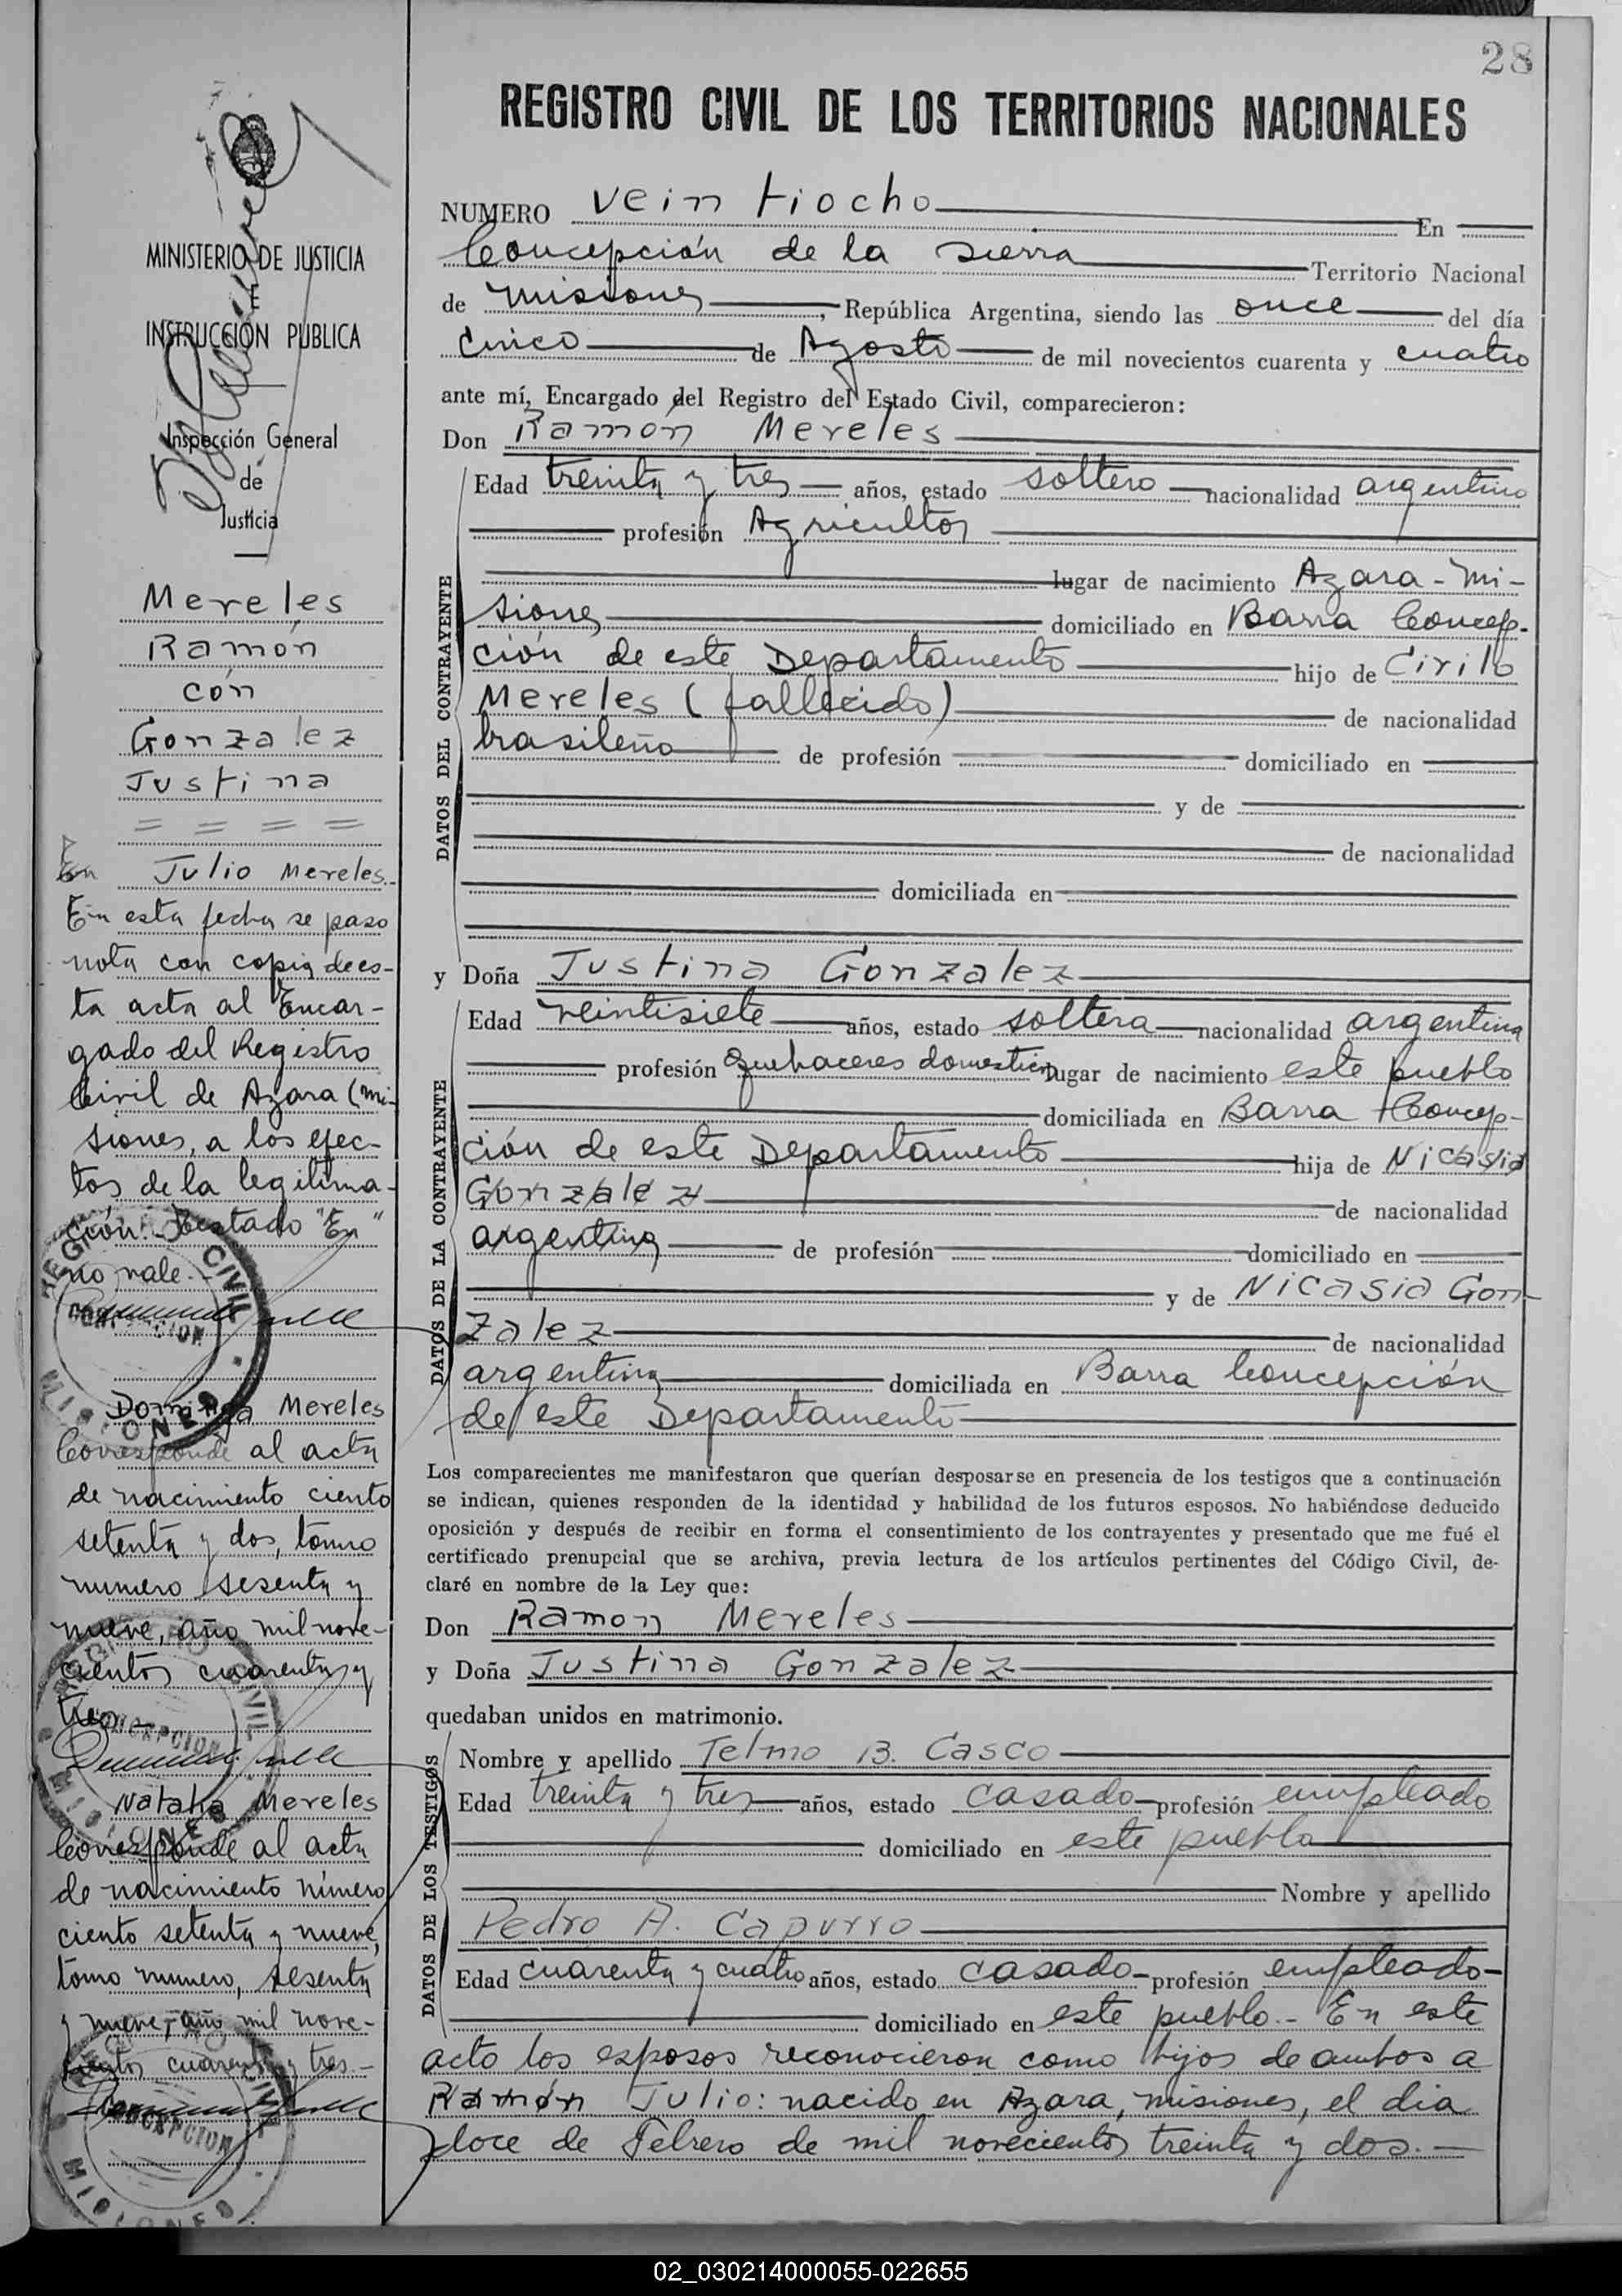 28
REGISTRO CIVIL DE LOS TERRITORIOS NACIONALES
MINISTERIO DE JUSTICIA
E
INSTRUCCIÓN PUBLICA
Inspección General
de
Justicia
Mereles
Ramón
con
Gonzalez
Justina
= = = =
En Julio Mereles.-
En esta fecha se paso
nota con copia de es-
ta acta al Encar-
gado del Registro
Civil de Azara (Mi-
siones, a los efec-
tos de la legitima-
ción. Testado "En"
no vale.-
Dominga Mereles
Corresponde al acta
de nacimiento ciento
setenta y dos, tomo
numero sesenta y
nueve, año mil nove-
cientos cuarenta y
tres.-
Natalia Mereles
Corresponde al acta
de nacimiento número
ciento setenta y nueve,
tomo numero, sesenta
y nueve, año mil nove-
cientos cuarenta y tres.-
REGISTRO CIVIL
CONCEPCION
MISIONES
NUMERO vein tiocho En
Concepción de la Sierra Territorio Nacional
de Misiones, República Argentina, siendo las once del día
cinco de Agosto de mil novecientos cuarenta y cuatro
ante mí, Encargado del Registro del Estado Civil, comparecieron:
Don Ramon Mereles
DATOS DEL CONTRAYENTE
Edad treinta y tres años, estado soltero nacionalidad argentino
profesión Agricultor
lugar de nacimiento Azara - Mi-
siones domiciliado en Barra Concep-
ción de este Departamento hijo de Cirilo
Mereles (fallecido) de nacionalidad
brasileño de profesión domiciliado en
y de
de nacionalidad
domiciliada en
y Doña Justina Gonzalez
DATOS DE LA CONTRAYENTE
Edad veintisiete años, estado soltera nacionalidad argentina
profesión Quehaceres domesticos lugar de nacimiento este pueblo
domiciliada en Barra Concep-
ción de este Departamento hija de Nicasia
Gonzalez de nacionalidad
argentina de profesión domiciliado en
y de Nicasia Gon-
zalez de nacionalidad
argentina domiciliada en Barra Concepción
de este Departamento
Los comparecientes me manifestaron que querían desposarse en presencia de los testigos que a continuación
se indican, quienes responden de la identidad y habilidad de los futuros esposos. No habiéndose deducido
oposición y después de recibir en forma el consentimiento de los contrayentes y presentado que me fué el
certificado prenupcial que se archiva, previa lectura de los artículos pertinentes del Código Civil, de-
claré en nombre de la Ley que:
Don Ramon Mereles
y Doña Justina Gonzalez
quedaban unidos en matrimonio.
DATOS DE LOS TESTIGOS
Nombre y apellido Telmo B. Casco
Edad treinta y tres años, estado casado profesión empleado
domiciliado en este pueblo
Nombre y apellido
Pedro A. Capurro
Edad cuarenta y cuatro años, estado casado profesión empleado
domiciliado en este pueblo.- En este
acto los esposos reconocieron como hijos de ambos a
Ramón Julio: nacido en Azara, Misiones, el dia
doce de Febrero de mil novecientos treinta y dos.-
02_030214000055-022655